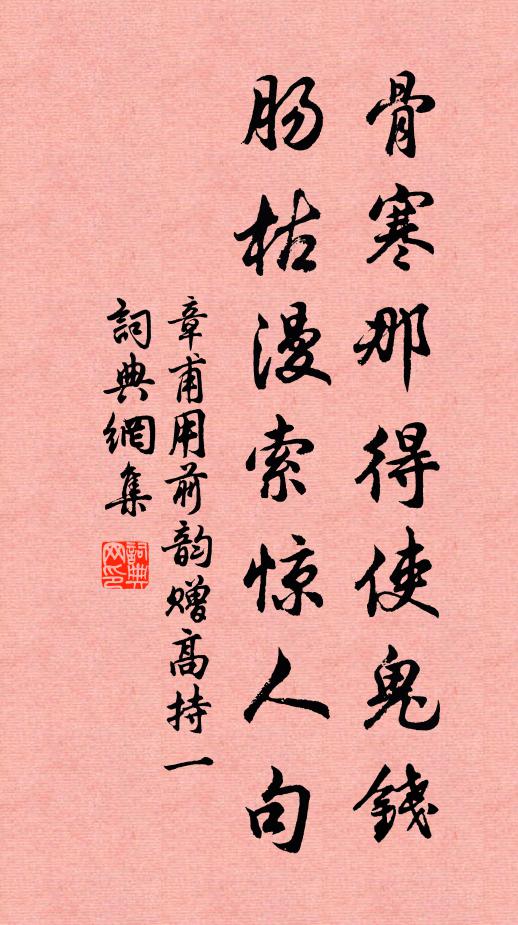 骨寒那得使鬼錢
肠枯漫索惊人句
章甫用前韵赠高持一
詞典網集
詞典网印